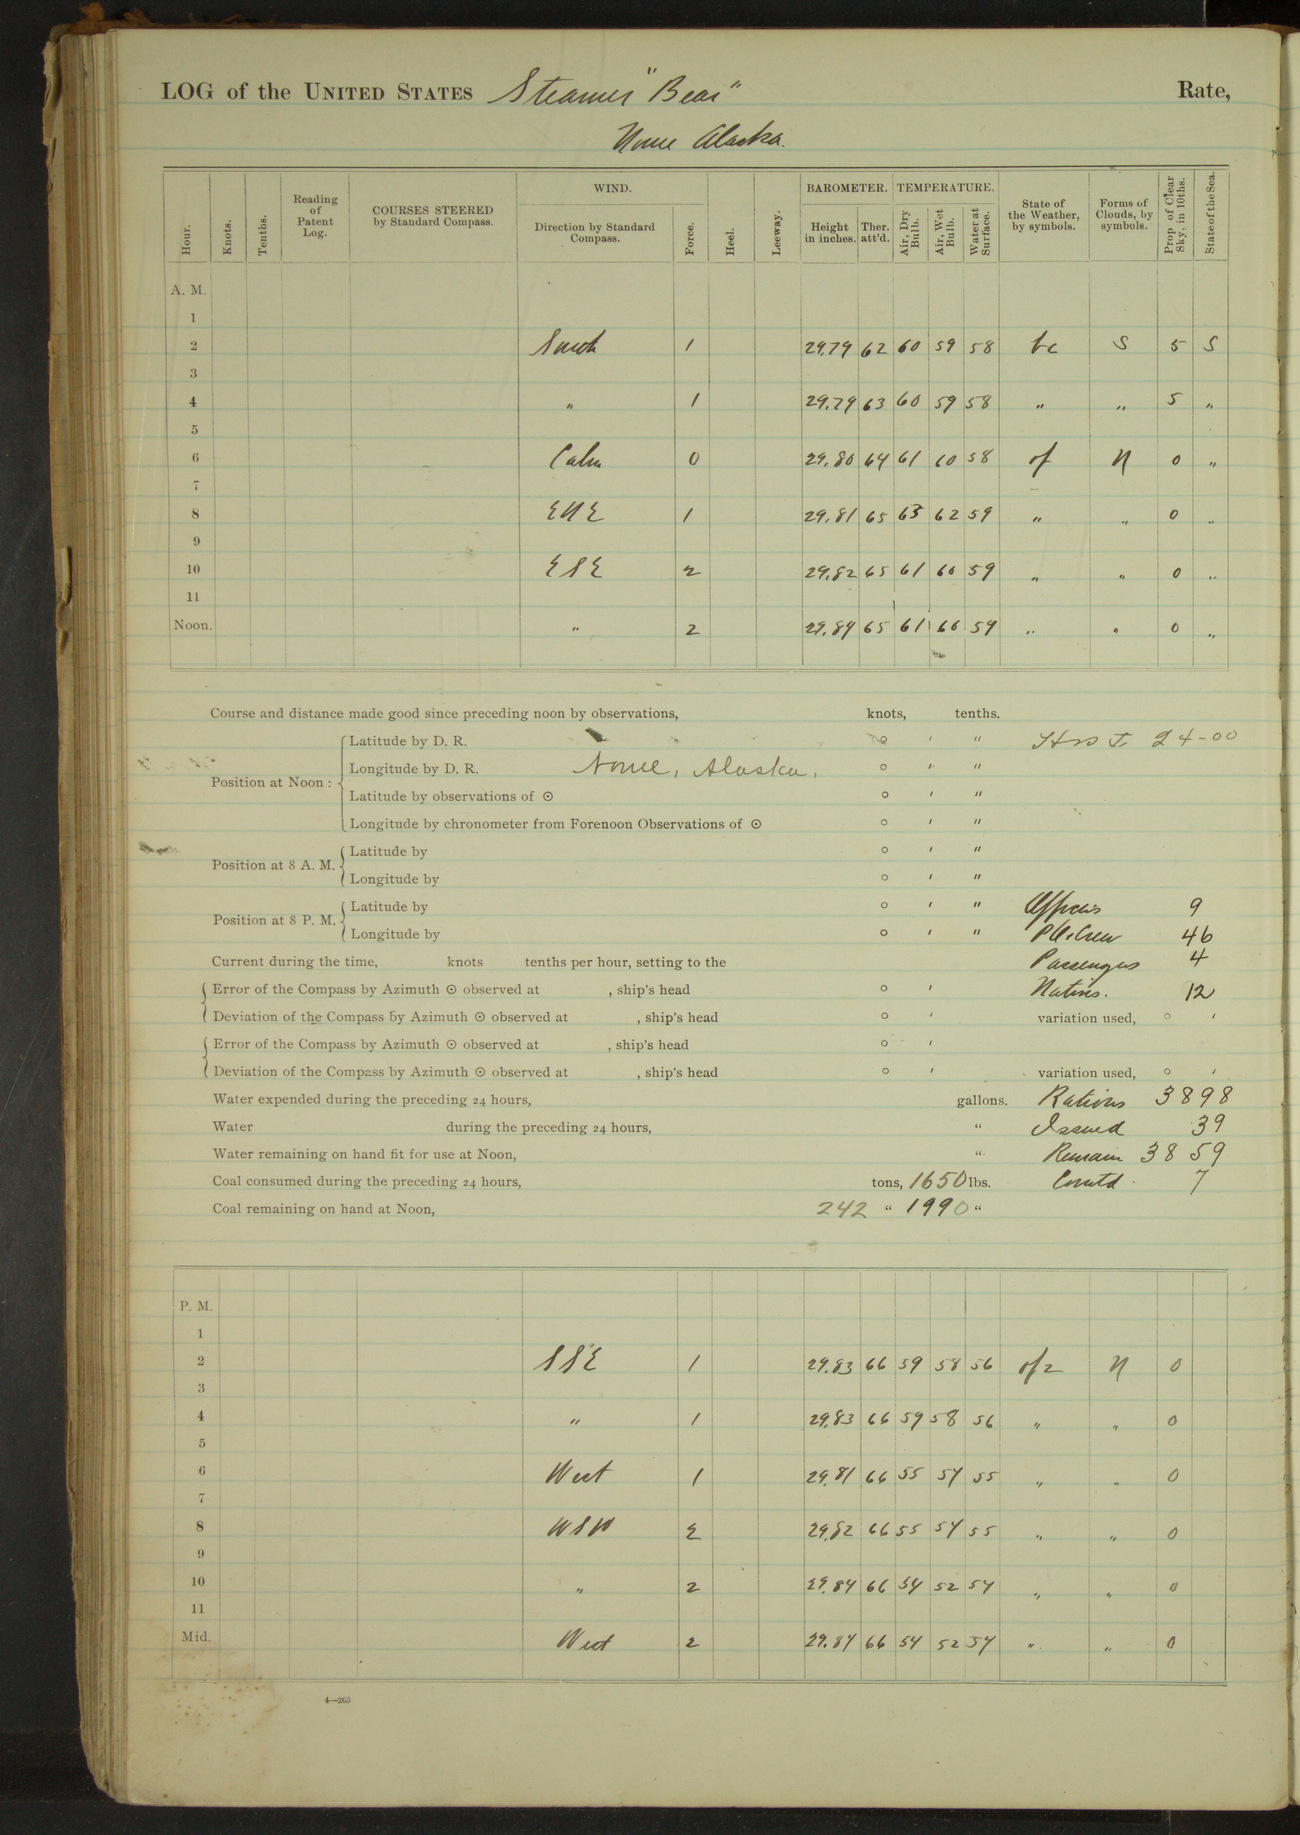 LOG of the UNITED STATES Steamer "Bear" Rate,
Nome Alaska.
Hour. Knots. Tenths. Reading of Patent Log. COURSES STEERED by Standard Compass. WIND. Direction by Standard Compass. Force. Heel. Leeway. BAROMETER. Height in inches. Ther. att'd. TEMPERATURE. Air, Dry Bulb. Air, Wet Bulb. Water at Surface. State of the Weather, by symbols. Forms of Clouds, by symbols. Prop of Clear Sky, in 10ths. State of the Sea.
A. M.
1
2 South 1 29.79 62 60 59 58 bc S 5 S
3
4 " 1 29.79 63 60 59 58 " " 5 "
5
6 Calm 0 29.80 64 61 60 58 of N 0 "
7
8 ENE 1 29.81 65 63 62 59 " " 0 "
9
10 ESE 2 29.82 65 61 60 59 " " 0 "
11
Noon. " 2 29.84 65 61 60 59 " " 0 "
Course and distance made good since preceding noon by observations, knots, tenths.
Position at Noon: Latitude by D. R. ° ' " 24-00
Longitude by D. R. Nome, Alaska. ° ' "
Latitude by observations of ☉ ° ' "
Longitude by chronometer from Forenoon Observations of ☉ ° ' "
Position at 8 A. M. Latitude by ° ' "
Longitude by ° ' "
Position at 8 P. M. Latitude by ° ' " Officers 9
Longitude by ° ' " Crew 46
Current during the time, knots tenths per hour, setting to the Passengers 4
Error of the Compass by Azimuth ☉ observed at , ship's head ° ' Natives. 12
Deviation of the Compass by Azimuth ☉ observed at , ship's head ° ' variation used, ° '
Error of the Compass by Azimuth ☉ observed at , ship's head ° '
Deviation of the Compass by Azimuth ☉ observed at , ship's head ° ' variation used, ° '
Water expended during the preceding 24 hours, gallons. Rations 3898
Water during the preceding 24 hours, " Issued 39
Water remaining on hand fit for use at Noon, " Remain 3859
Coal consumed during the preceding 24 hours, tons, 1650 lbs. Comtd. 7
Coal remaining on hand at Noon, 242 " 1990 "
P. M.
1
2 SSE 1 29.83 66 59 58 56 ofz N 0
3
4 " 1 29.83 66 59 58 56 " " 0
5
6 West 1 29.81 66 55 54 55 " " 0
7
8 WSW 2 29.82 66 55 54 55 " " 0
9
10 " 2 29.84 66 54 52 54 " " 0
11
Mid. West 2 29.84 66 54 52 54 " " 0
4—263